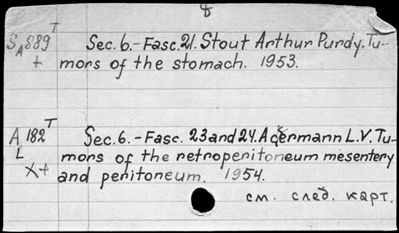 8
S 889 T Sec. 6.-Fasc. 21. Stout Arthur Purdy. Tu-
A
+ mors of the stomach. 1953.
A 182 T Sec. 6.-Fasc. 23 and 24. Ackermann L. V. Tu-
L mors of the retroperitoneum mesentery
X+ and peritoneum. 1954.
см. след. карт.